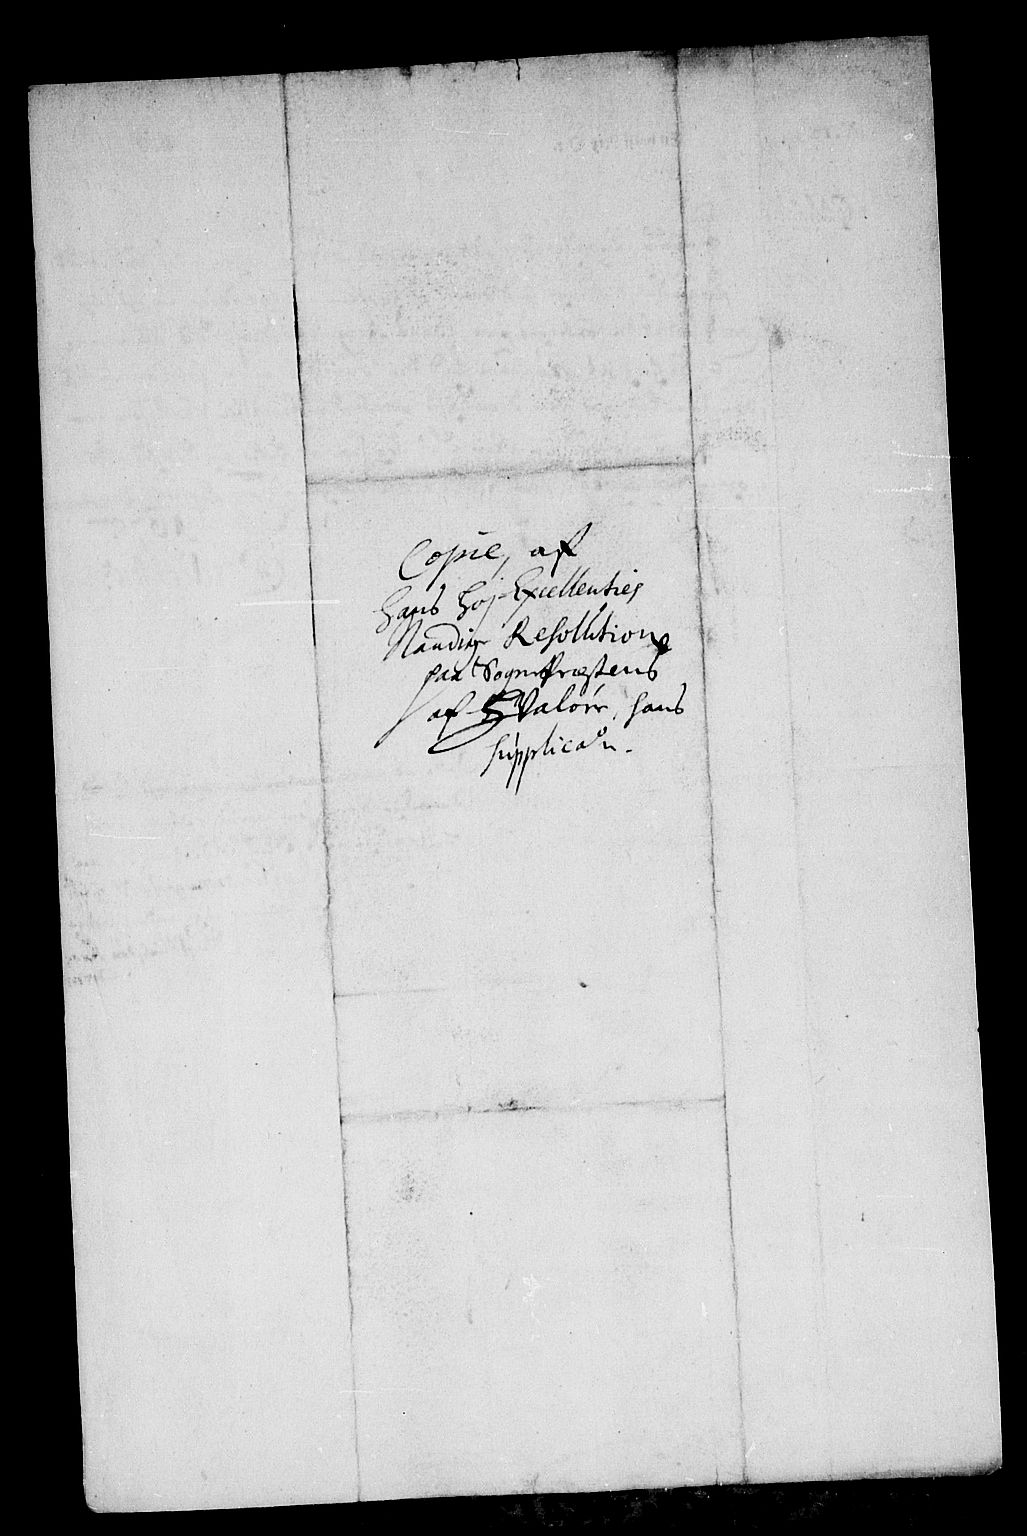 Copie, af
Hans Höj-Excellenties
Naadige Resolution
paa SognePræstens
af Hvalöer, hans
Supplica͞on.